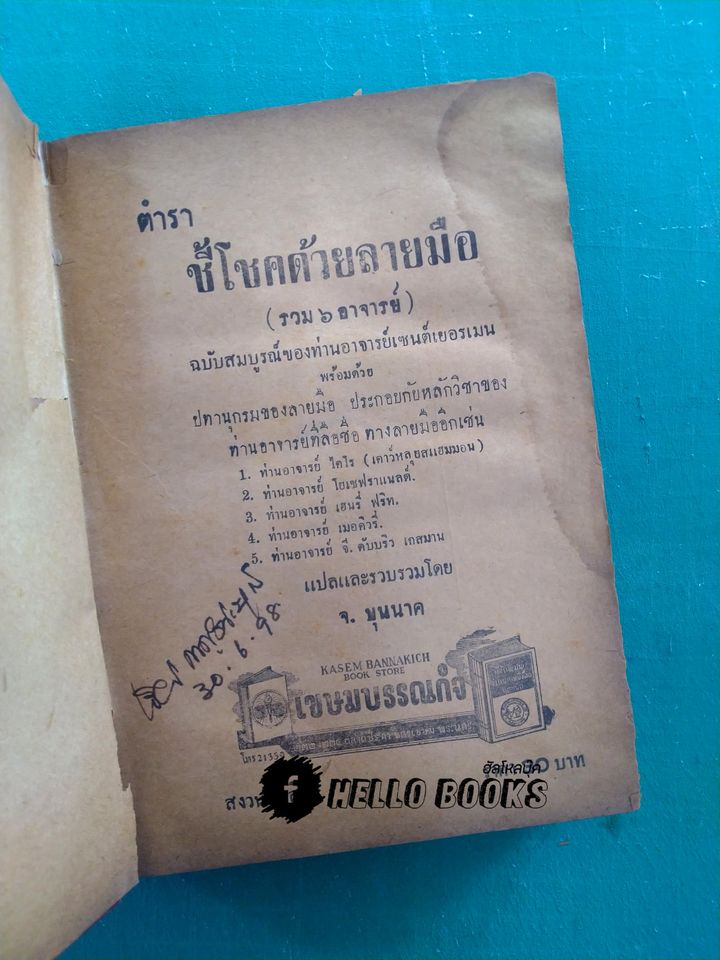 ตำรา
ชี้โชคด้วยลายมือ
(รวม ๖ อาจารย์)
ฉบับสมบูรณ์ของท่านอาจารย์เซนต์เยอรเมน
พร้อมด้วย
ปทานุกรมของลายมือ ประกอบกับหลักวิชาของ
ท่านอาจารย์ที่ลือชื่อ ทางลายมืออีกเช่น
1. ท่านอาจารย์ ไคโร (เคาว์หลุยสแฮมมอน)
2. ท่านอาจารย์ โยเซฟราแนลด์.
3. ท่านอาจารย์ เฮนรี่ ฟริท.
4. ท่านอาจารย์ เมอคิวรี่.
5. ท่านอาจารย์ จี. ดับบริว เกสมาน
แปลและรวบรวมโดย
จ. บุนนาค
30.6.98
KASEM BANNAKICH
BOOK STORE
เขษมบรรณกิจ
โทร 21359
สงวน
30 บาท
ฮัลโหลบุค
f HELLO BOOKS